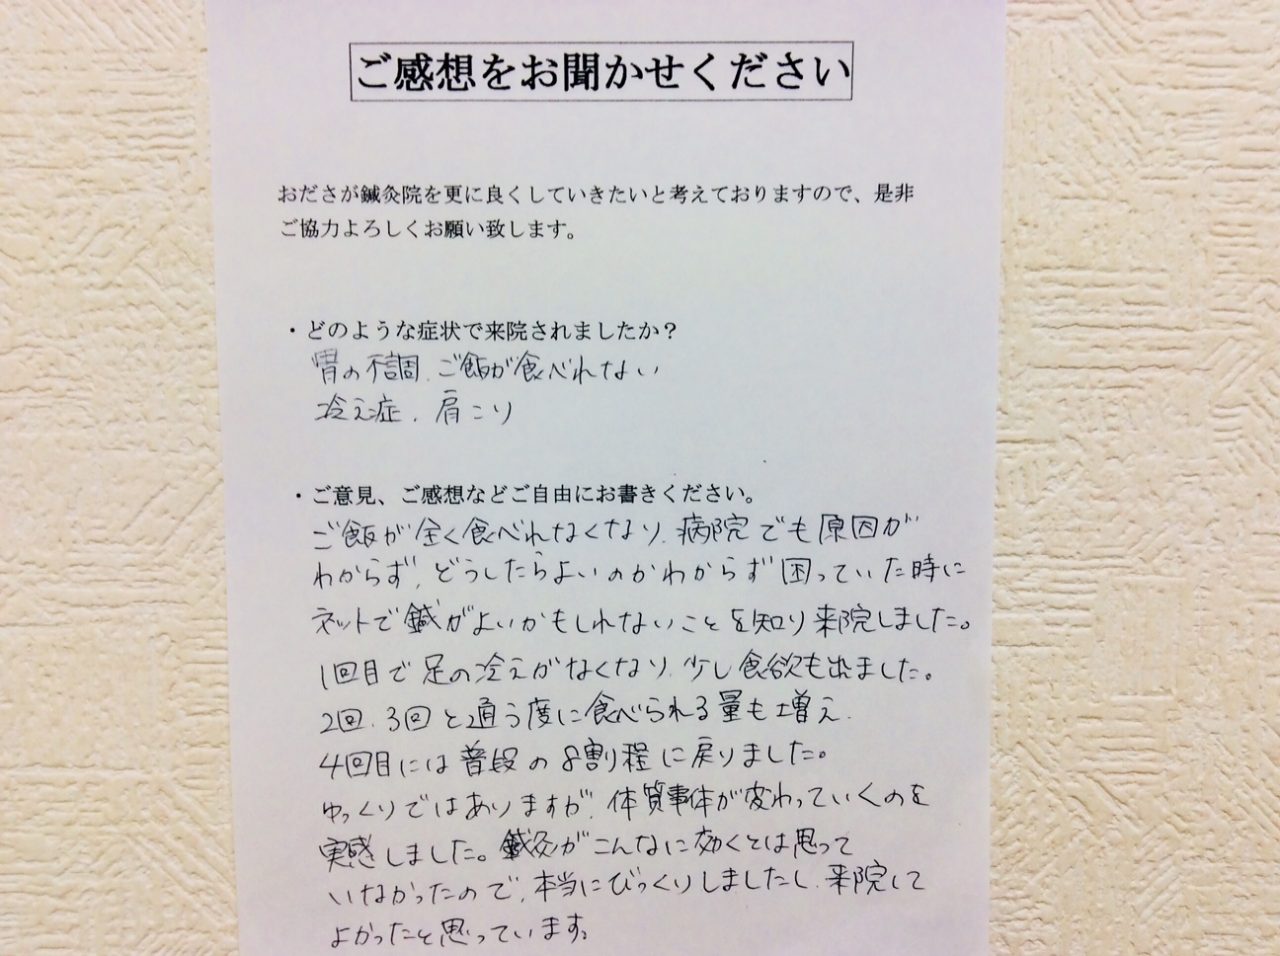 ご感想をお聞かせください
おださが鍼灸院を更に良くしていきたいと考えておりますので、是非
ご協力よろしくお願い致します。
・どのような症状で来院されましたか？
胃の不調、ご飯が食べれない
冷え症、肩こり
・ご意見、ご感想などご自由にお書きください。
ご飯が全く食べれなくなり、病院でも原因が
わからず、どうしたらよいのかわからず困っていた時に
ネットで鍼がよいかもしれないことを知り来院しました。
1回目で足の冷えがなくなり、少し食欲も出ました。
2回、3回と通う度に食べられる量も増え、
4回目には普段の8割程に戻りました。
ゆっくりではありますが、体質事体が変わっていくのを
実感しました。鍼灸がこんなに効くとは思って
いなかったので、本当にびっくりしましたし、来院して
よかったと思っています。